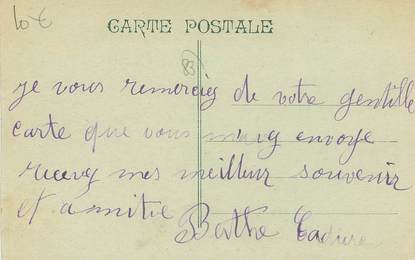 10 €
CARTE POSTALE
83
je vous remercieg de votre gentille
carte que vous envoye
receveg mes meilleur souvenir
et amitie Berthe